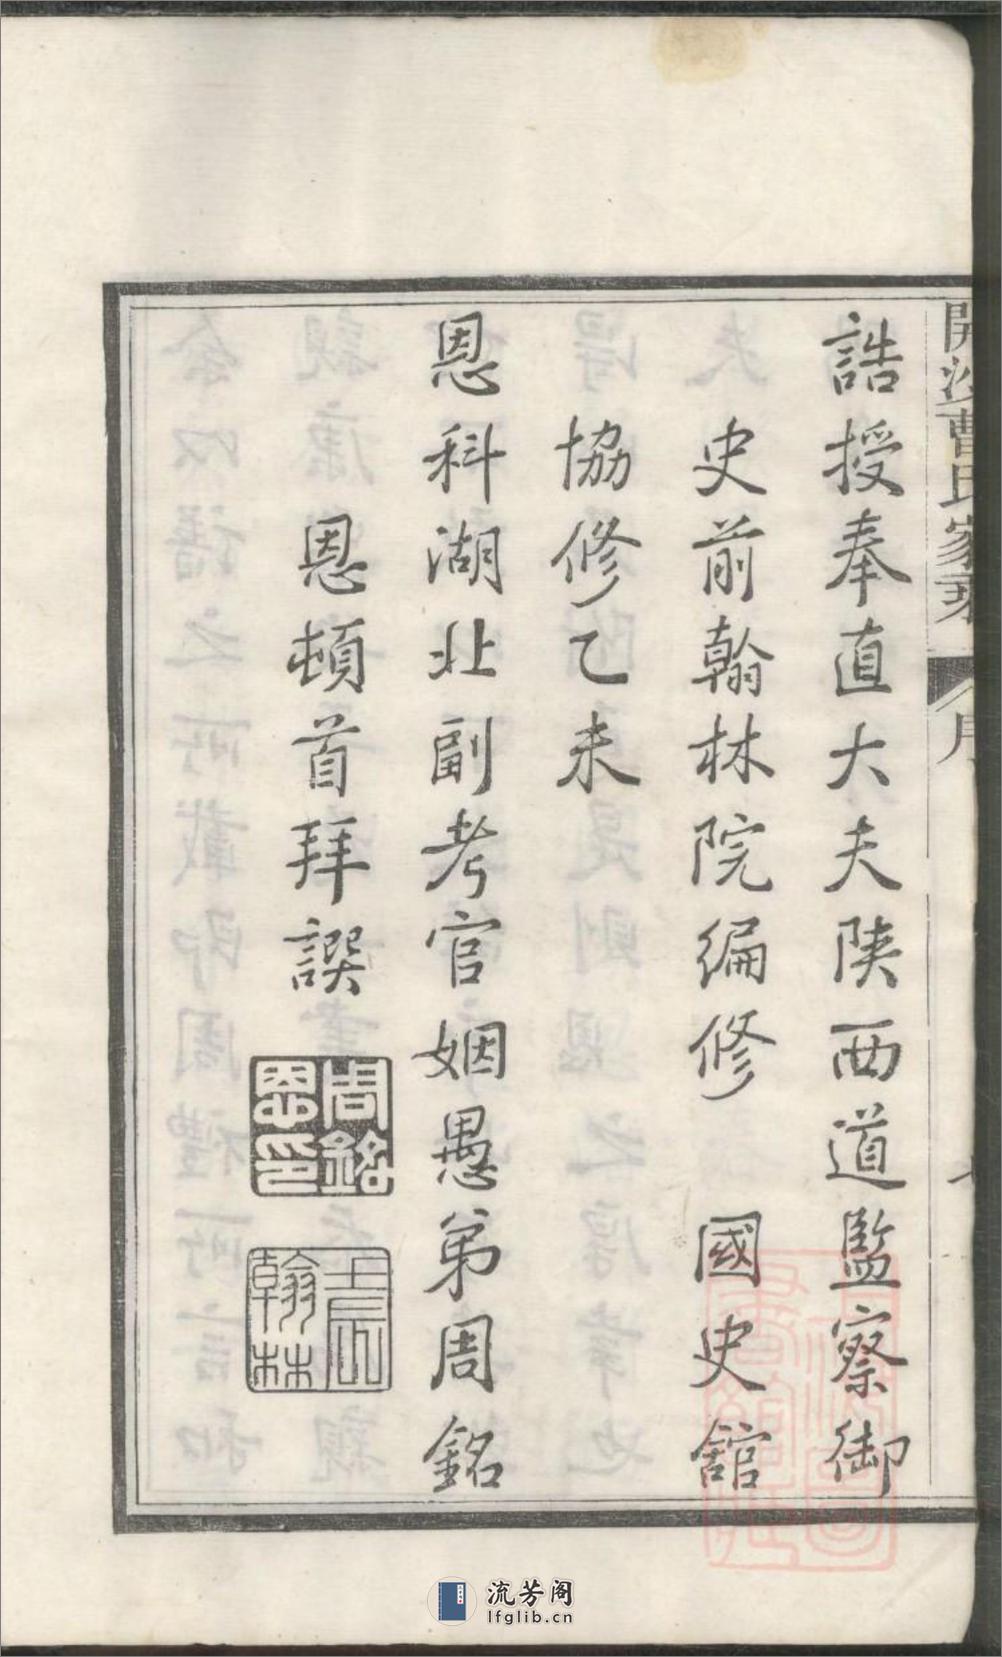 開沙曹氏家乘
序
誥授奉直大夫陝西道監察御
史前翰林院編修 國史館
協修乙未
恩科湖北副考官姻愚弟周銘
恩頓首拜譔
周銘恩印
翰林
流芳阁
lfglib.cn